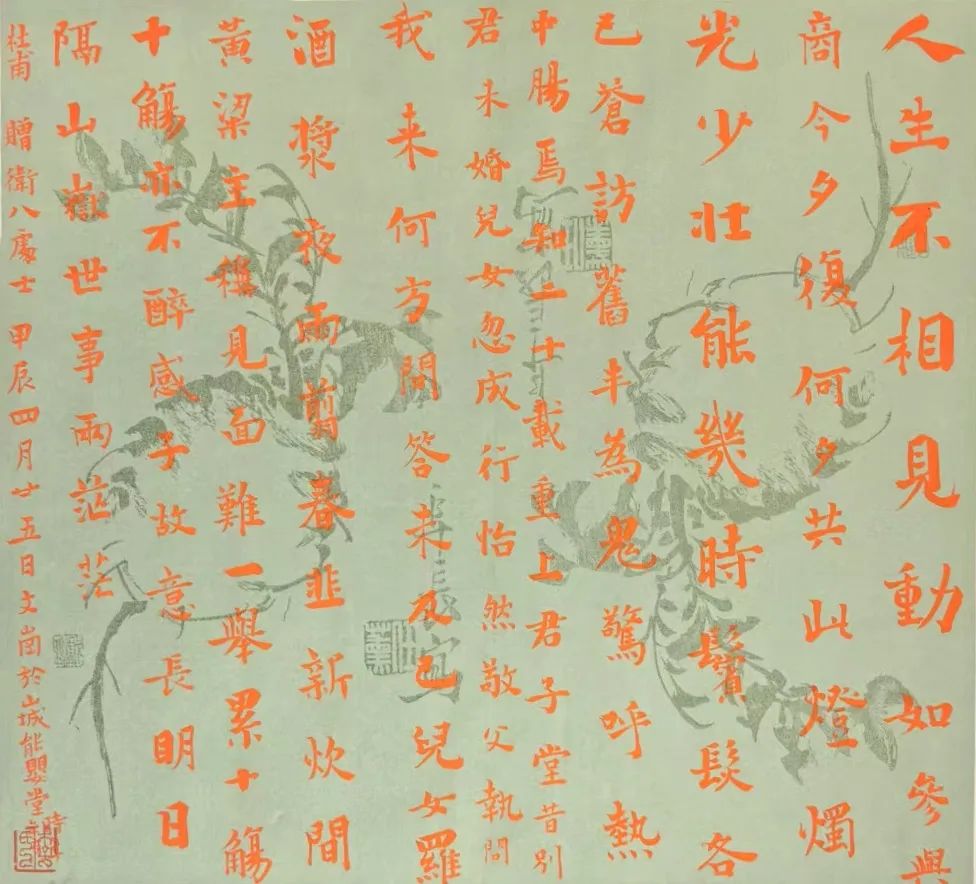 人生不相見動如參與
商今夕復何夕共此燈燭
光少壯能幾時鬢髮各
已蒼訪舊半為鬼驚呼熱
中腸焉知二十載重上君子堂昔別
君未婚兒女忽成行怡然敬父執問
我来何方問答未及已兒女羅
酒漿夜雨翦春韭新炊間
黃粱主稱見面難一舉累十觴
十觴亦不醉感子故意長明日
隔山嶽世事兩茫茫
杜甫 贈衛八處士 甲辰四月廿五日文崗於山城能嬰堂時